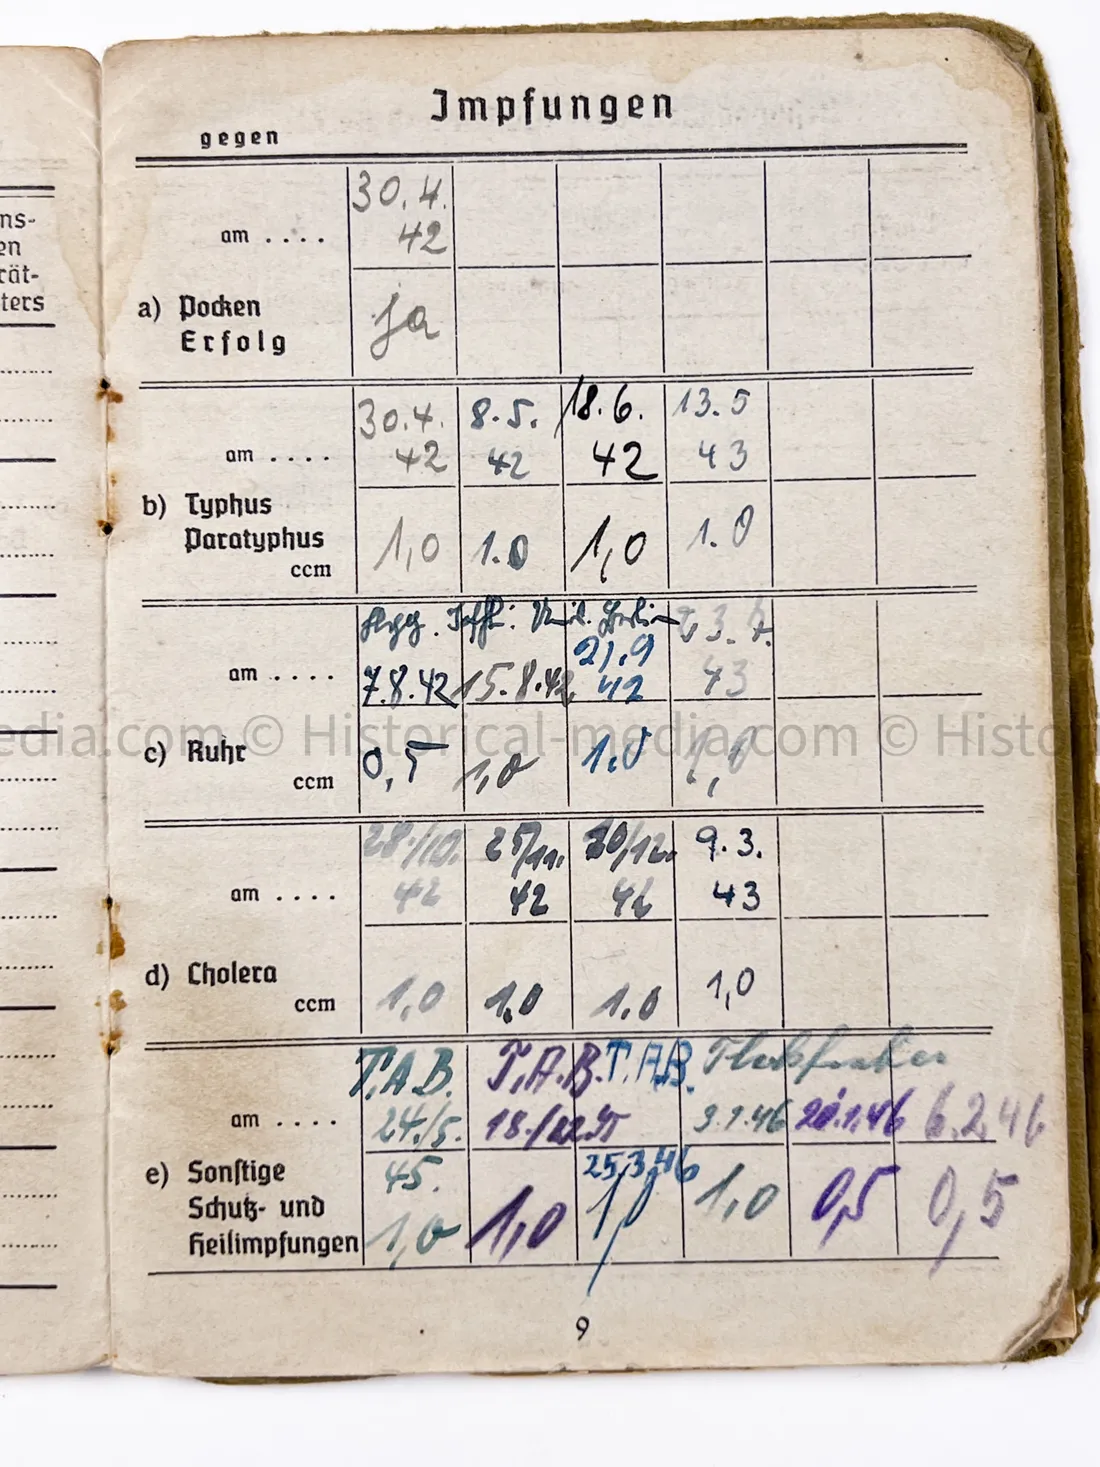 ns-
en
rät-
ters
Impfungen
gegen
30.4.
am .... 42
a) Pocken
Erfolg
ja
30.4. 8.5. 18.6. 13.5
am .... 42 42 42 43
b) Typhus
Paratyphus
ccm
1,0 1.0 1,0 1.0
Berlin 23.7.
21.9
am .... 7.8.42 15.8.42 42 43
edia.com © Historical-media.com © Histori
c) Ruhr
ccm
0,5 1,0 1.0 1,0
28./10. 25/11. 20/12. 9.3.
am .... 42 42 42 43
d) Cholera
ccm
1,0 1.0 1.0 1,0
T.A.B. T.A.B. T.A.B.
am .... 24./5. 9.1.46 20.1.46 6.2.46
45. 25.3.46
e) Sonstige
Schutz- und
Heilimpfungen
1,0 1,0 1,0 1,0 0,5 0,5
9